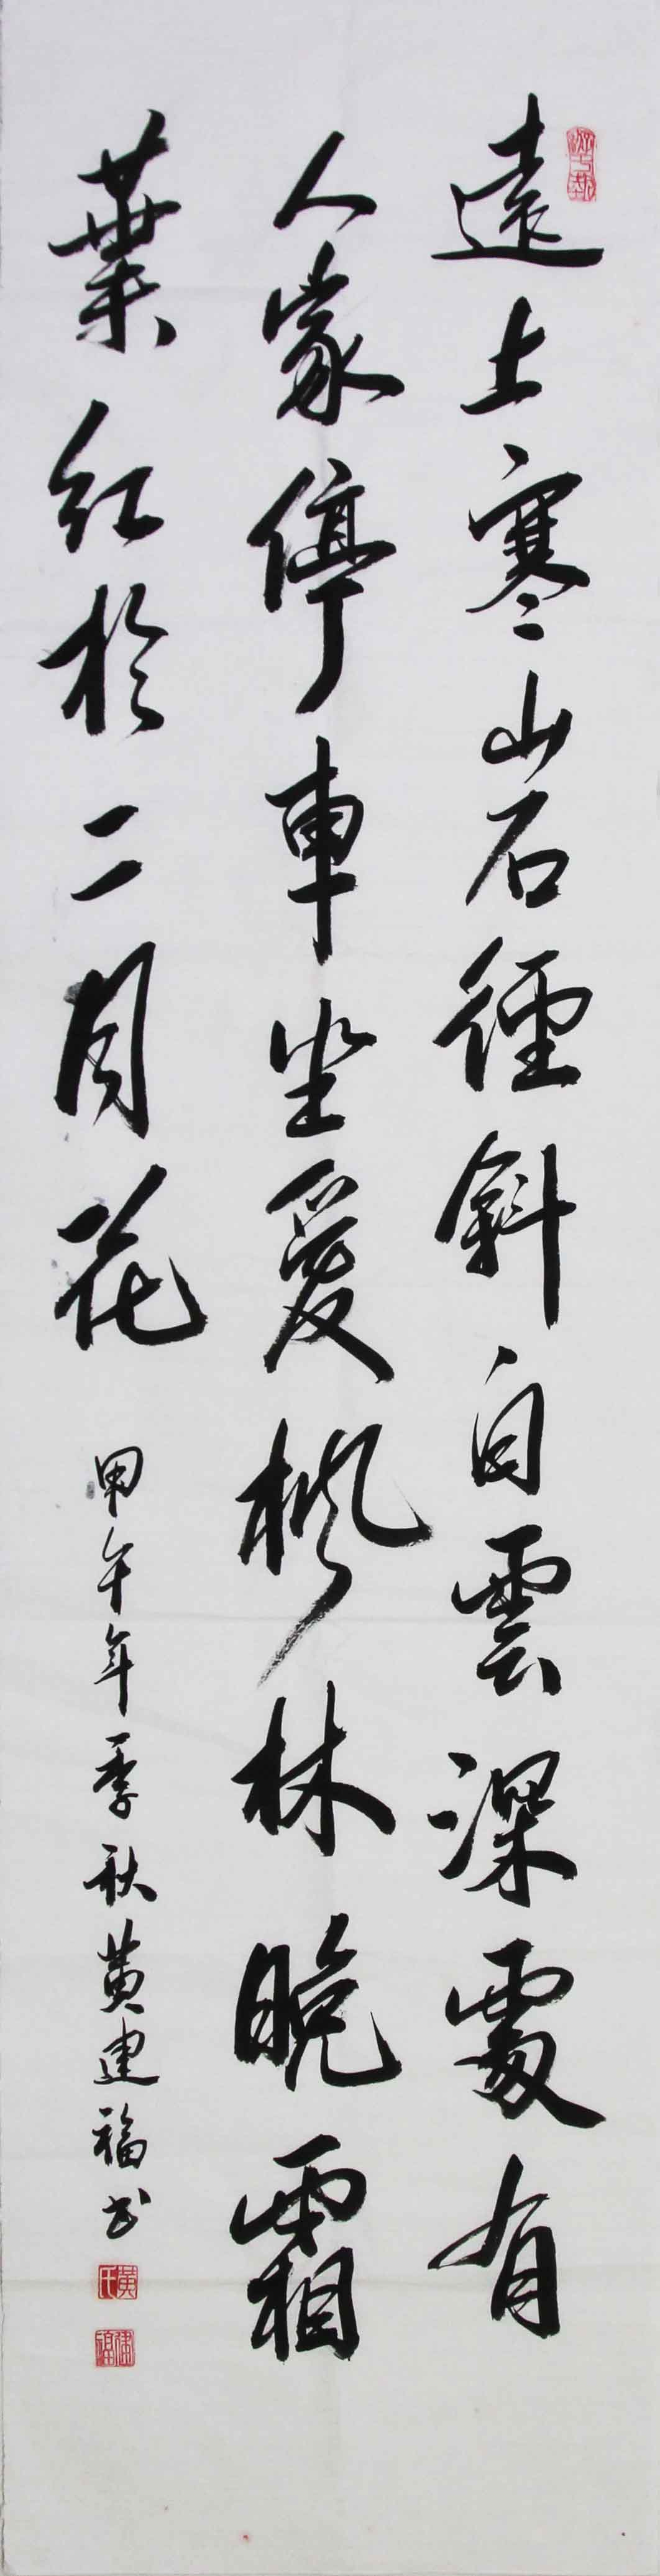 遠上寒山石徑斜白雲深處有
人家停車坐愛楓林晚霜
葉紅於二月花
甲午年季秋黃建福书
黃氏
建福